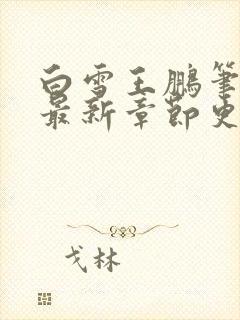 白雪王鹏筆
最新章節史
戈林